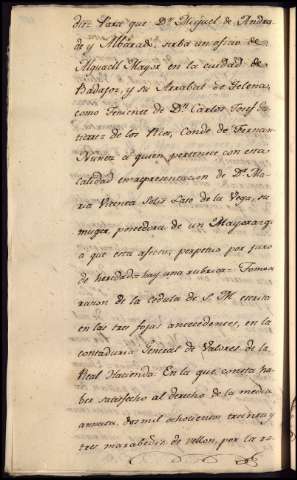 diz Para que Dn. Miguel de Andra
de y Albarad. sirba un ofico de
Alguacil Mayor en la ciudad de
Badajoz, y su Arrabal de Telena,
como Teniente de Dn. Carlos Josef Gu
tierrez de los Rios, Conde de Fernan
Nuñez à quien pertenece con esta
calidad en representacion de Dª. Ma
ria Vicenta Solis Laso de la Vega, su
muger, poseedora de un Mayorazgo
a que esta afecto, perpetuo por juro
de heredad = hay una rubrica = Tomose
razon de la cedula de S. M. escrita
en las tres fojas antecedentes, en la
contaduria General de Valores de la
Real Hacienda. En la que consta ha
ber satisfecho al derecho de la media
annata, dos mil ochocientos treinta y
tres marabedis de vellon, por la ra